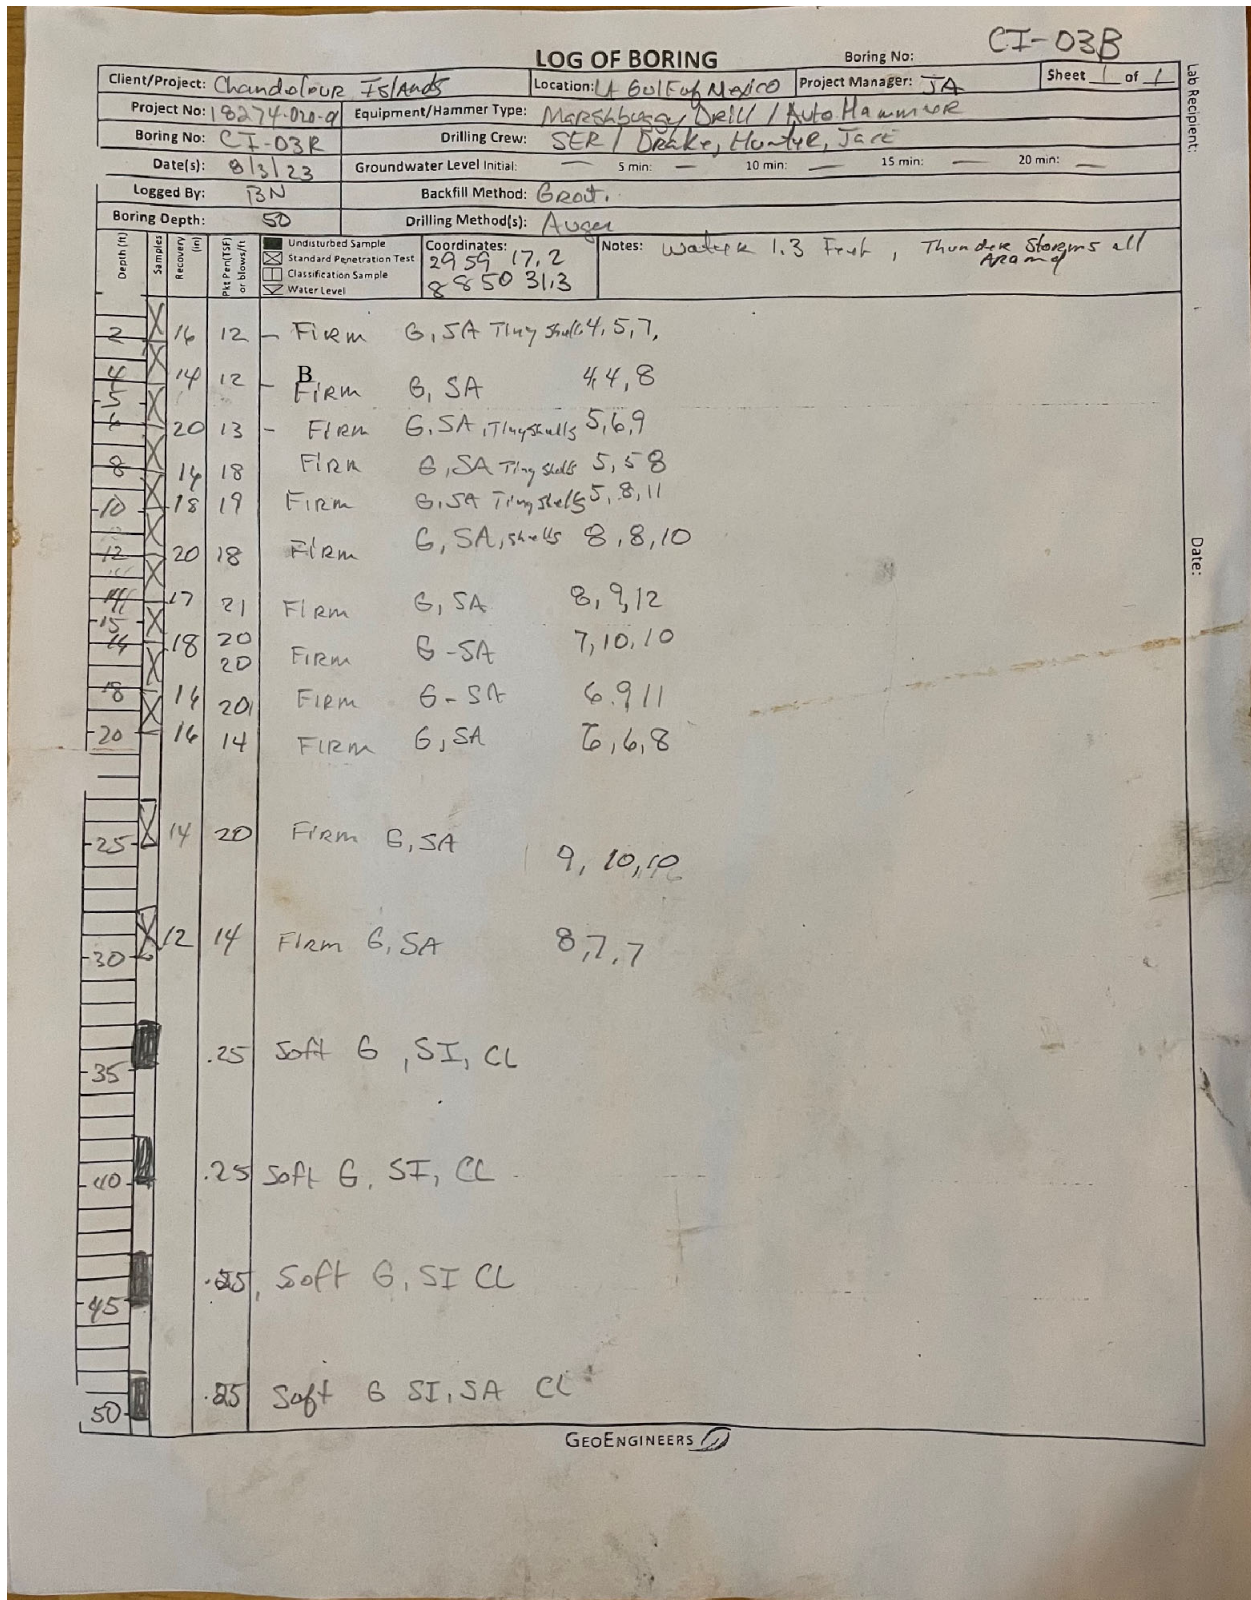 CI-03B
LOG OF BORING Boring No:
Client/Project: Chandeleur Islands Location: LA Gulf of Mexico Project Manager: JA Sheet 1 of 1
Project No: 18274-020-9 Equipment/Hammer Type: Marshbuggy Drill / Auto Hammer
Boring No: CI-03B Drilling Crew: SER / Drake, Hunter, Jace
Date(s): 8/3/23 Groundwater Level Initial: — 5 min: — 10 min: — 15 min: — 20 min:
Logged By: BN Backfill Method: Grout.
Boring Depth: 50 Drilling Method(s): Auger
Depth (ft) Samples Recovery (in) Pkt Pen(TSF) or blows/ft
Undisturbed Sample
Standard Penetration Test
Classification Sample
Water Level
Coordinates:
29 59 17.2
88 50 31.3
Notes: Water 1.3 Feet, Thunder Storms all Around
Lab Recipient:
Date:
2 16 12 - Firm G, SA Tiny Shells 4, 5, 7,
B
4 14 12 - Firm G, SA 4, 4, 8
5
6 20 13 - Firm G, SA, Tiny shells 5, 6, 9
8 14 18 Firm G, SA Tiny Shells 5, 5 8
10 18 19 Firm G, SA Tiny Shells 5, 8, 11
12 20 18 Firm G, SA, shells 8, 8, 10
14 17 21 Firm G, SA 8, 9, 12
15
16 18 20 Firm G - SA 7, 10, 10
20
18 16 20 Firm G - SA 6. 9 11
20 16 14 Firm G, SA 6, 6, 8
25 14 20 Firm G, SA 9, 10, 10
30 12 14 Firm G, SA 8, 7, 7
35 .25 Soft G, SI, CL
40 .25 Soft G, SI, CL
45 .25, Soft G, SI CL
50 .25 Soft G SI, SA CL
GEOENGINEERS